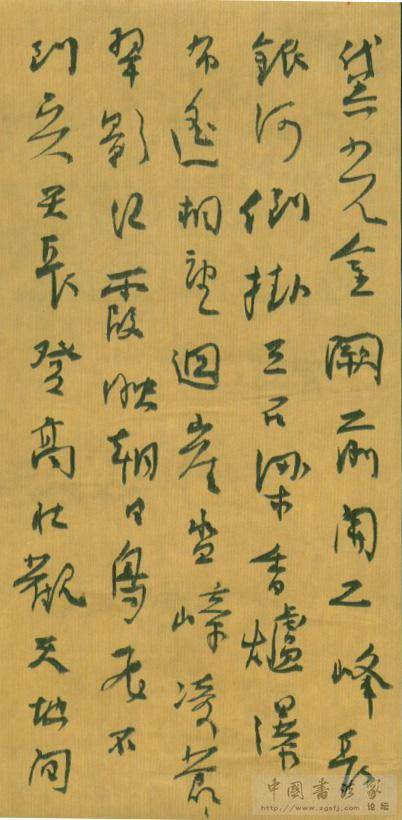 黛光金闕前開二峰長
銀河倒掛三石梁香爐瀑
布遙相望迴崖沓嶂凌蒼々
翠影紅霞映朝日鳥飛不
到吳天長登高壯觀天地間
中國書法家
http://www.zgsfj.com 论坛